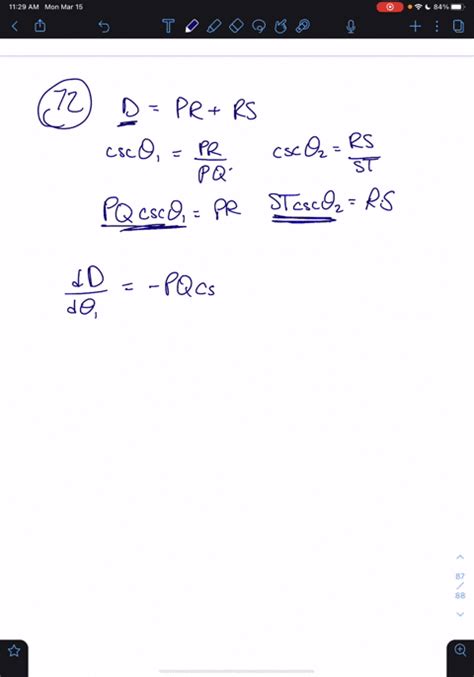 11:29 AM Mon Mar 15 84%
72 D = PR + RS
cscθ₁ = PR/PQ cscθ₂ = RS/ST
PQcscθ₁ = PR STcscθ₂ = RS
dD/dθ₁ = -PQcs
87
/
88